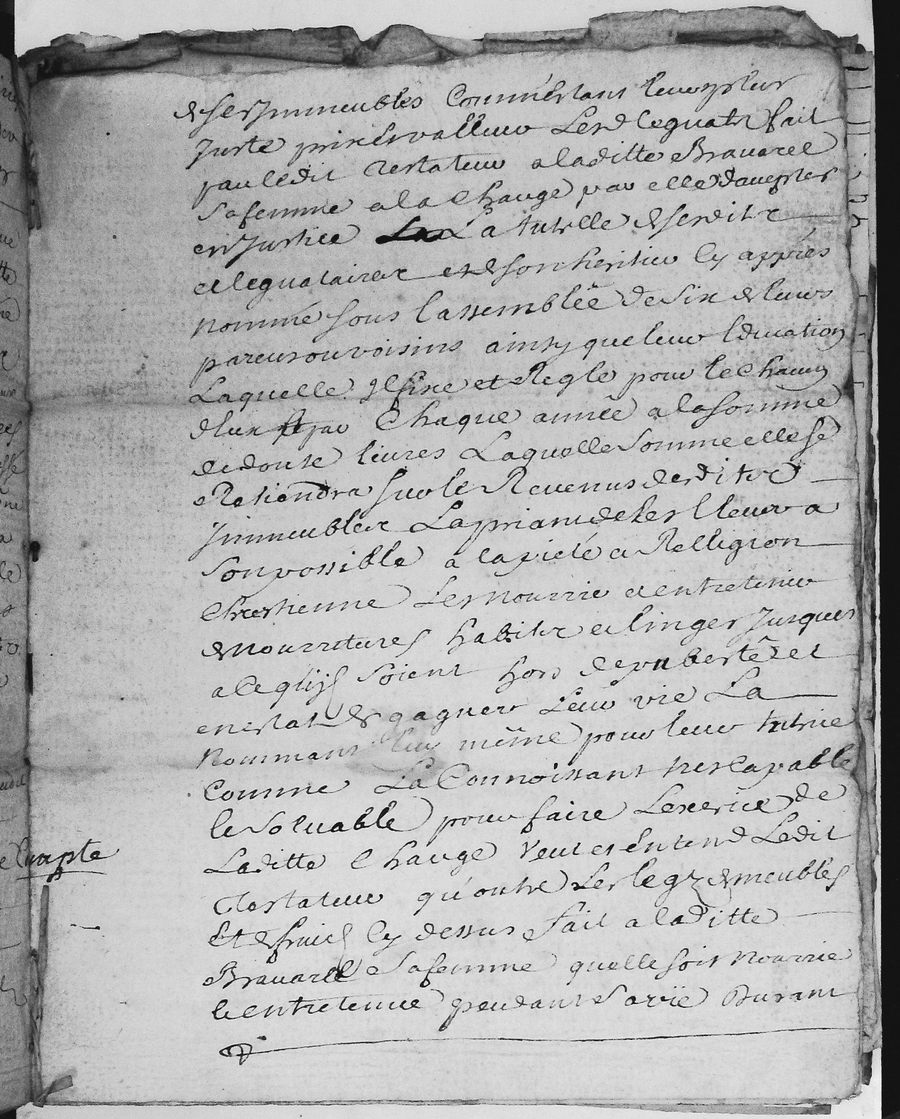 & ses Immeubles Comme estant leur plus
Juste prix et valleur Les d Leguatz fait
par ledit Testateur a laditte Bravarel
Sa femme a la Charge par elle daccepter
en Justice La tutelle de ses dits
et leguataires et de son heritier Cy apprès
nommé sous lassemblée de six de leurs
parens ou voisins ainsy que leur Education
Laquelle Il fixe et Regle pour le Chacun
dieux par Chaque année a la somme
de douse livres Laquelle Somme elle se
Retiendra sur le Revenus desdits
Immeubles La priant de les Ellever a
Son possible a la piété et Relligion
Chrestienne Les nourrir et entretenir
de nourritures habits et linges Jusques
a ce qu'ils soient hors de puberté et
en estat de gagner Leur vie La
Nommant luy même pour leur tutrice
Comme La Connoissant tres Capable
le Solvable pour faire Lexercice de
Laditte Charge Veut et Entend Ledit
Testateur qu'outre Les legz de meubles
Et de fruits Cy dessus fait a laditte
Bravarel Sa femme quelle soit nourrie
le entretenue pendant Sa vie Durant